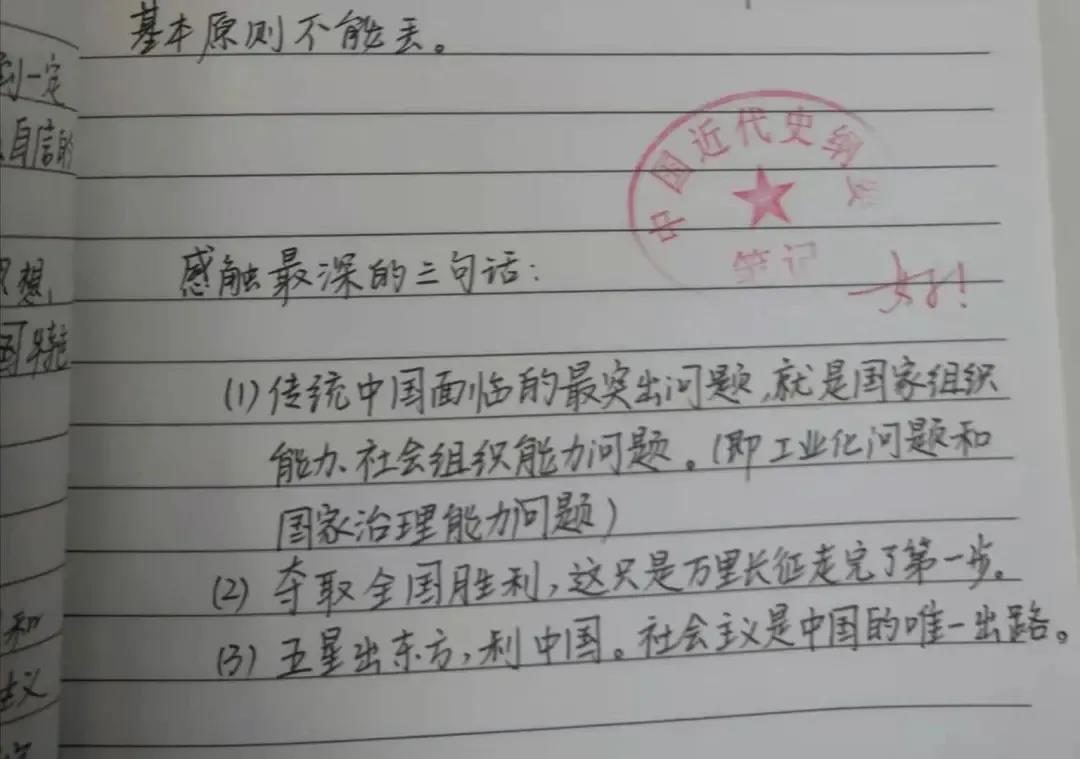 基本原则不能丢。
到一定
自信的
中国近代史纲
笔记
好!
感触最深的三句话:
思想,
国特
(1)传统中国面临的最突出问题,就是国家组织
能力、社会组织能力问题。(即工业化问题和
国家治理能力问题)
(2)夺取全国胜利,这只是万里长征走完了第一步。
(3)五星出东方,利中国。社会主义是中国的唯一出路。
和
主义